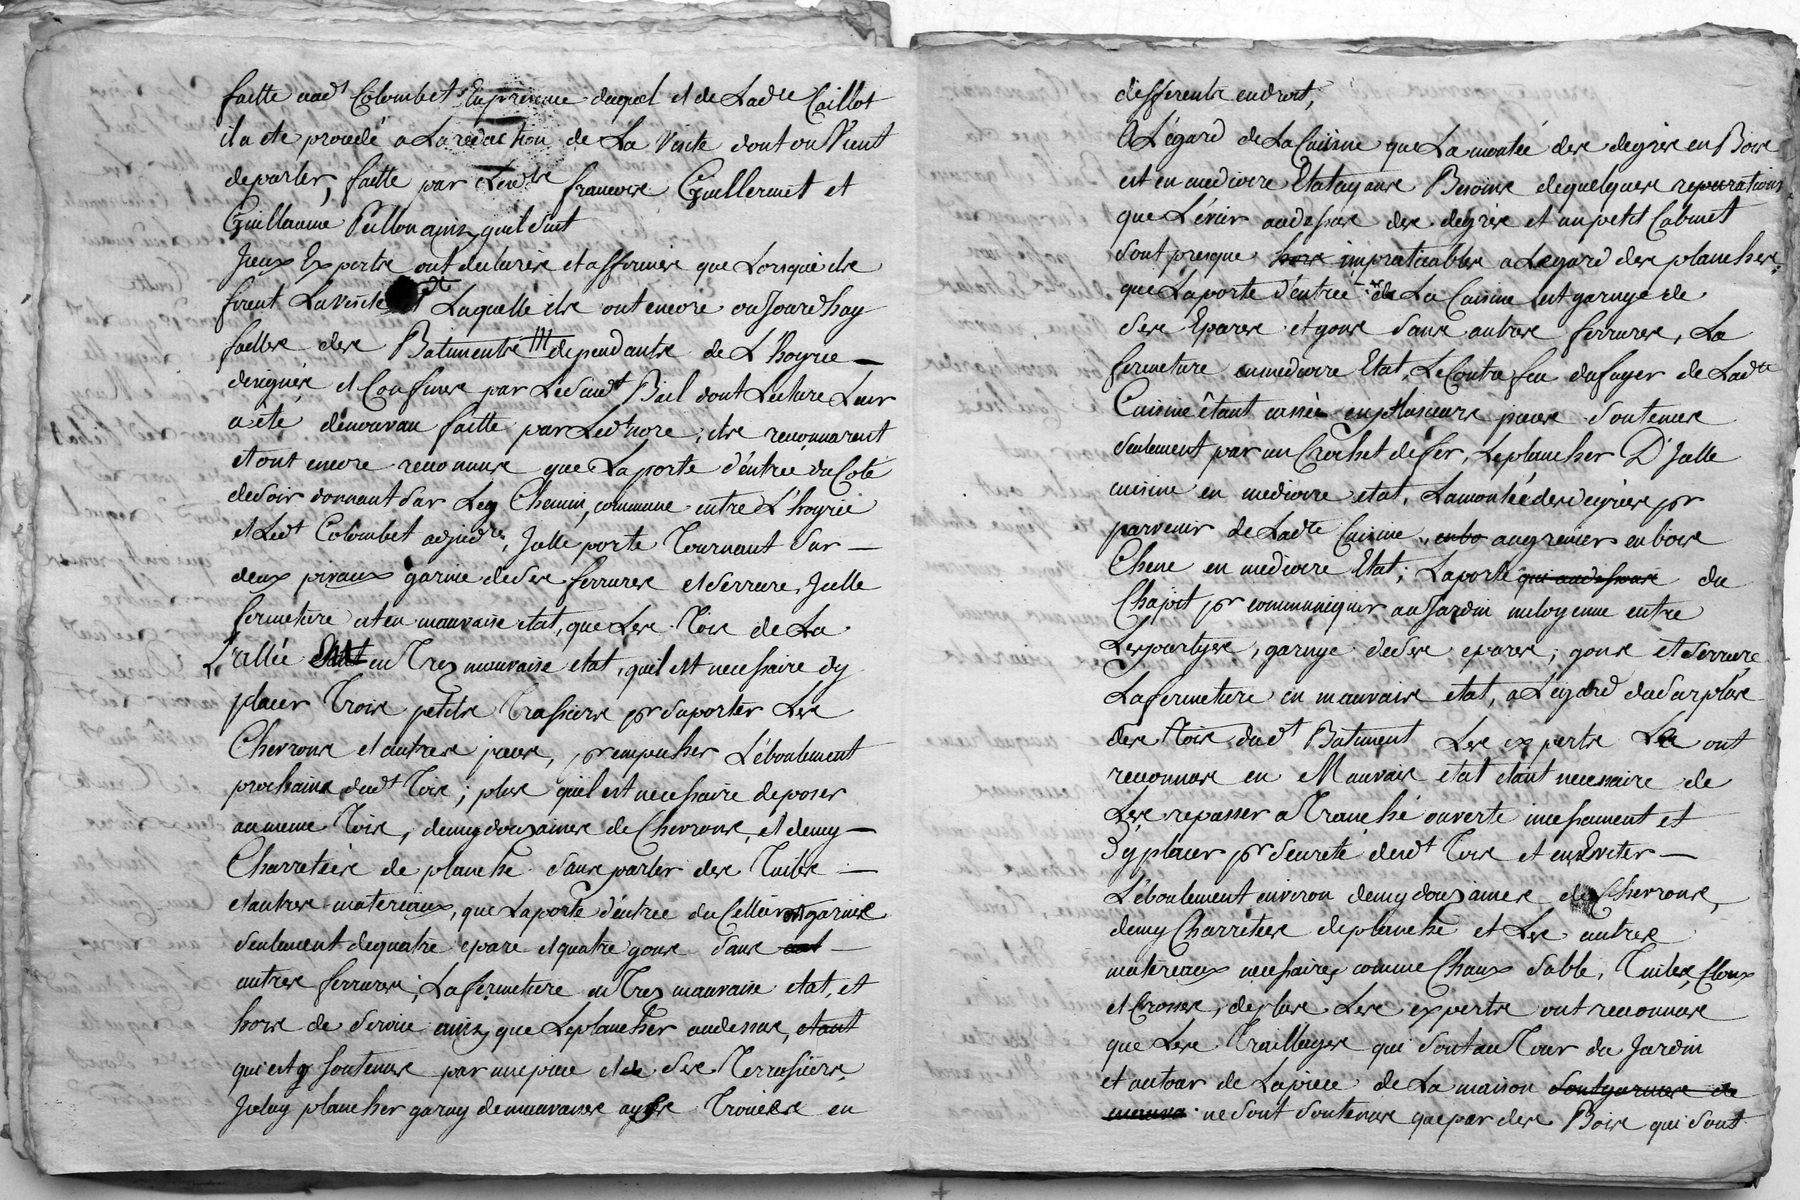 faitte audt Colombet En presence duquel et de Ladte Caillot
il a ete procedé a La redaction de La Visite dont on Vient
de parler, faitte par Lesdts francois Guillermet et
Guillaume Peillon ainsy quil suit
Iceux Experts ont declarés et affirmés que Lorsquils
firent La visite Laquelle ils ont encore aujourdhuy
faittes des Batiments dependants de L'hoyrie —
designés et Confinés par Ledt Biel dont Lecture Leur
a été denouvau faitte par Ledt nore, ils reconnurent
et ont encore reconnus que La porte d'entrée du Coté
de soir donnant sur Ley Chemin, commune entre L'hoyrie
et Ledt Colombet adjudre, Jcelle porte Tournant sur —
deux pivaux garnie de ses ferrures et serrure, Jcelle
fermeture est en mauvaise etat, que Les Tois de La
Lallée en Trez mauvaise etat, quil est necessaire dy
placer Trois petits Trassiers pr suporter Les
Chevrons et autres pieces, pr empecher L'éboulement
prochains dudt Tois; plus quil est necessaire de poser
au meme Tois, demy douzaines de Chevrons, et demy —
Charretées de planche sans parler des Tuiles —
et autres materiaux, que La porte d'entrée du Cellier est garnie
seulement de quatre epare et quatre gons sans —
autres ferrures; La fermeture en Trez mauvaise etat, et
hors de service ainsy que Le plancher audessus, etant
qui est soutenus par une piece et de ses Terrassiers
Jceluy plancher garny de mauvaises ays Trouées en
differents endroit,
A L'égard de La Cuisine que La montée des degrés en Bois
est en mediocre Etat ayans Besoins de quelques reparations
que L'évier audessus des degrés et un petit Cabinet
sont presque hors impraticables a Legard des planchers,
que La porte d'entrée de La Cuisine est garnye de
ses Epares et gons sans autres ferrures, La
fermeture en mediocre Etat, Le Contre feu du foyer de Ladte
Cuisine étant cassée en plusieurs pieces soutenues
seulement par un Crochet de fer, Le plancher D'Jcelle
cuisine en mediocre etat, La montée des degrées pr
parvenir de Ladte Cuisine au grenier en bois
Chene en mediocre Etat; La porte qui audessous du
Chapit pr communiquer au Jardin mitoyenne entre
Les partyes, garnye de ses epares, gons et serrure,
La fermeture en mauvais etat, a L'égard du surplus
des Tois dudt Batiment Les experts Les ont
reconnus en Mauvais etat etant necessaire de
Les repasser a Tranché ouverte incessament et
D'y placer pr seureté dudt Tois et en Eviter —
L'éboulement environ demy douzaines de Chevrons,
demy Charretées de planche et Les autres
materiaux necessaires comme Chaux sable, Tuiles, Cloux
et Crosses, de plus Les experts ont reconnus
que Les Traillages qui sont au Tour du Jardin
et autour de La piece de La maison sont garnies de
ne sont soutenus que par des Bois qui sont